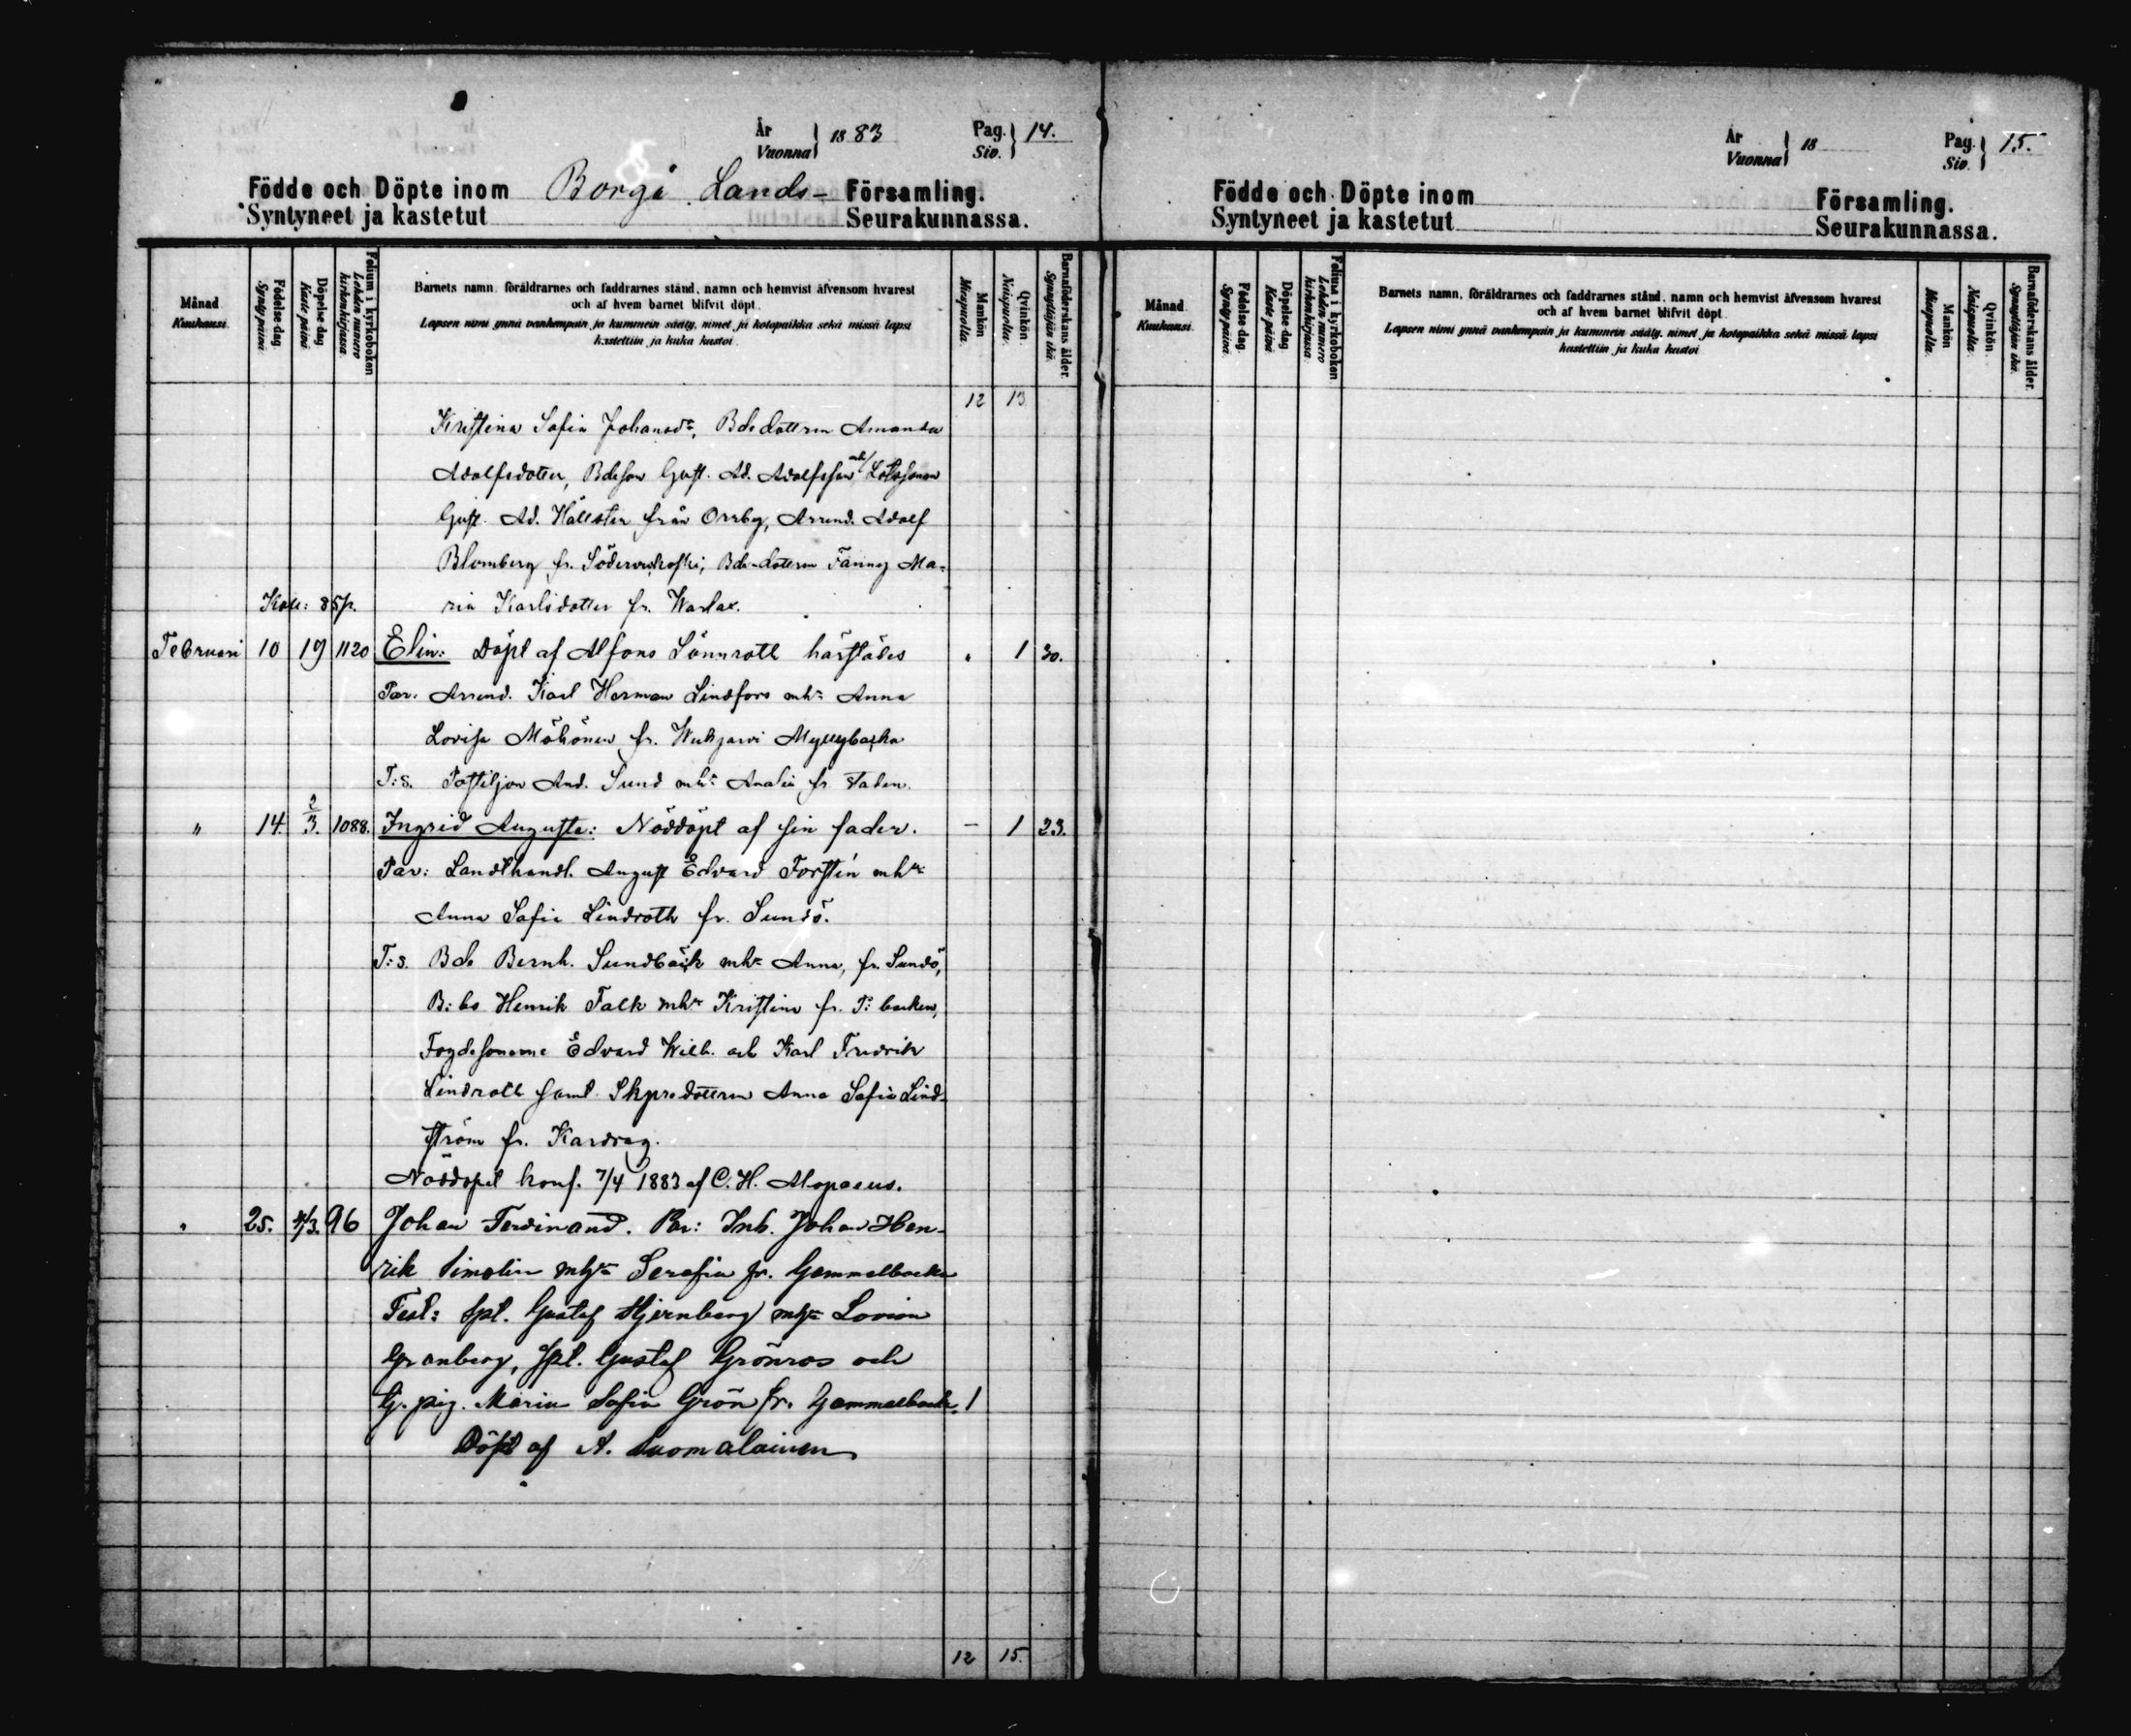 År Vuonna 1883 Pag. Siv. 14.
Födde och Döpte inom Borgå Lands- Församling.
Syntyneet ja kastetut Seurakunnassa.
Månad Kuukausi.
Födelse-dag. Syntypäivä.
Döpelse-dag Kastepäivä
Folium i kyrkoboken Lehden numero kirkonkirjassa.
Barnets namn, föräldrarnes och faddrarnes stånd, namn och hemvist äfvensom hvarest
och af hvem barnet blifvit döpt.
Lapsen nimi ynnä vanhempain ja kummein sääty, nimet ja kotopaikka sekä missä lapsi
kastettiin ja kuka kastoi.
Mankön Miespuolta.
Qvinkön. Naispuolta.
Barnaföderskans ålder. Synnyttäjän ikä.
12 13
Kristina Sofia Johansdr, Bdedottern Amanda
Adolfsdotter, Bdeson Gust. Ad. Adolfsson och Lotssonen
Gust. Ad. Hällsten från Orrby, Arrend. Adolf
Blomberg fr. Söderveckoski, Bde-dottern Fanny Ma-
ria Karlsdotter fr. Warlax.
Koll: 85 p.
Februari 10 19 1120 Elin: Döpt af Alfons Lönnroth härstädes 1 30.
Par: Arrend. Karl Herman Lindfors mhr Anna
Lovisa Möhönen fr. Wekjärvi Myllybacka
T:s. Postiljon And. Sund mhr Amalia fr. Staden.
" 14. 2/3. 1088. Ingrid Augusta: Nöddöpt af sin fader. – 1 23.
Par: Landthandl. August Edvard Forstén mhr
Anna Sofia Lindroth fr. Sundö.
T:s. Bde Bernh. Sundbäck mhr Anna, fr. Sundö,
B:bo Henrik Falk mhr Kristina fr. T:backen,
Fogdesönerne Edvard Wilh. och Karl Fredrik
Lindroth samt Skpredottern Anna Sofia Lind-
ström fr. Kardrag.
Nöddopet konf. 7/4 1883 af C. H. Alopaeus.
" 25. 4/3. 96 Johan Ferdinand. Par: Inh. Johan Hen-
rik Simolin mhr Serafia fr. Gammelbacka
Test: Spl. Gustaf Hjernberg mhr Lovisa
Granberg, Spl. Gustaf Grönros och
G. pig. Maria Sofia Grön fr. Gammelbacka. 1
Döpt af A. Suomalainen
12 15.
År Vuonna 18 Pag. Siv. 15.
Födde och Döpte inom Församling.
Syntyneet ja kastetut Seurakunnassa.
Månad Kuukausi.
Födelse-dag. Syntypäivä.
Döpelse-dag Kastepäivä
Folium i kyrkoboken Lehden numero kirkonkirjassa.
Barnets namn, föräldrarnes och faddrarnes stånd, namn och hemvist äfvensom hvarest
och af hvem barnet blifvit döpt.
Lapsen nimi ynnä vanhempain ja kummein sääty, nimet ja kotopaikka sekä missä lapsi
kastettiin ja kuka kastoi
Mankön Miespuolta.
Qvinkön. Naispuolta.
Barnaföderskans ålder. Synnyttäjän ikä.